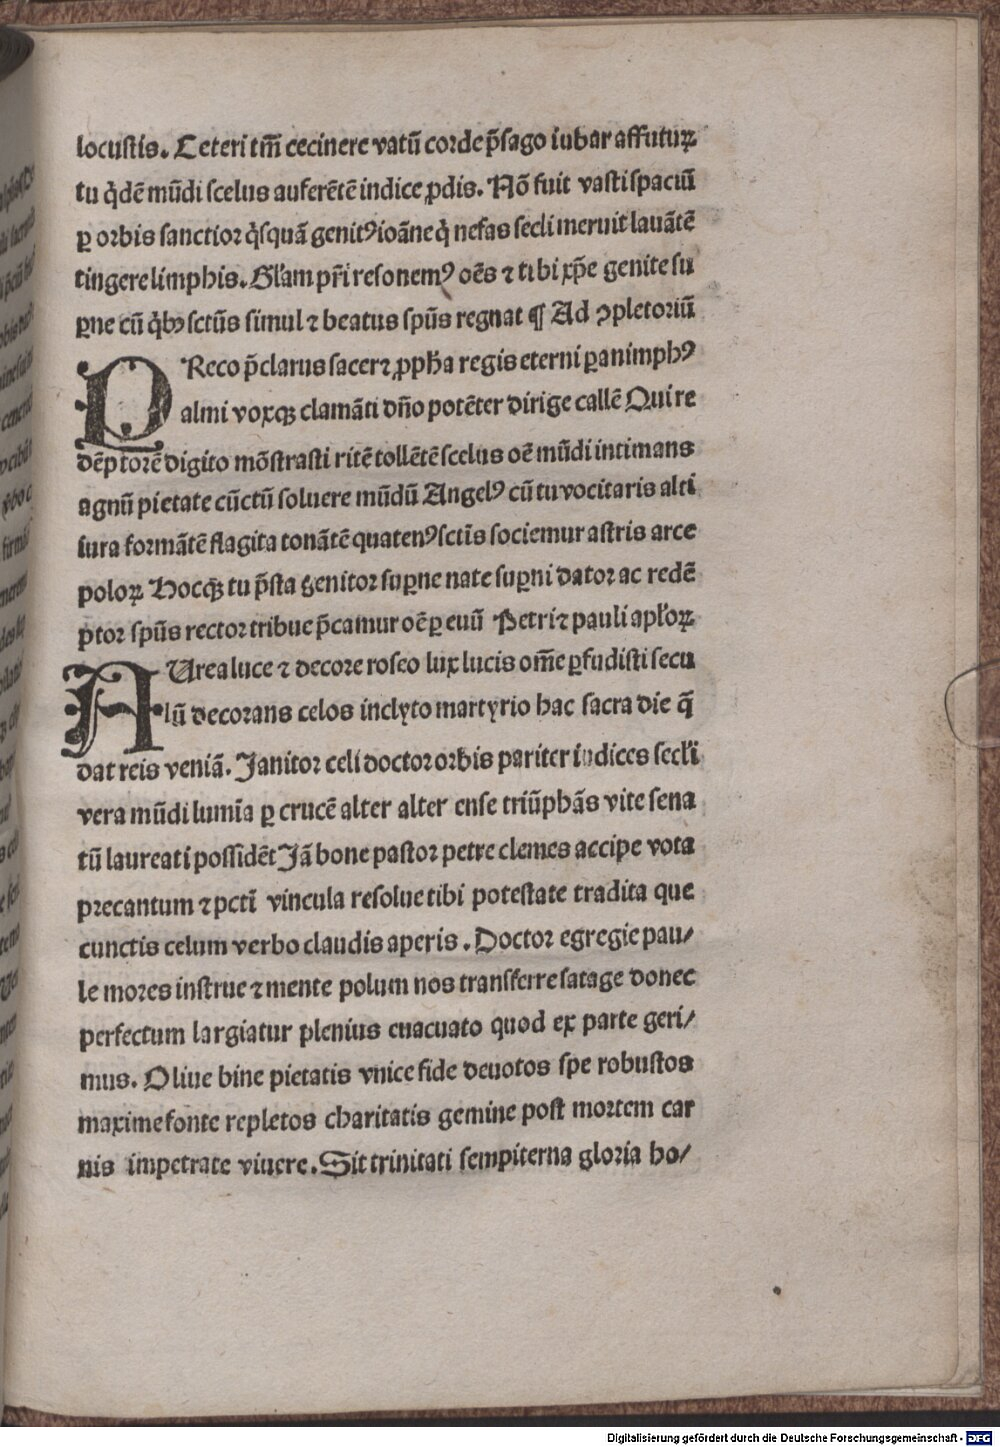 locustis. Ceteri tm̄ cecinere vatū corde p̄sago iubar affuturꝝ
tu q̇dē mūdi scelus auferētē indice ꝓdis. Nō fuit vasti spaciū
ꝑ orbis sanctior q̇squā genitꝰ ioāne q̇ nefas secli meruit lauātē
tingere limphis. Gl'am pr̄i resonemꝰ oēs ⁊ tibi xp̄e genite su
ꝑne cū q̇bꝫ sctūs simul ⁊ beatus spūs regnat ¶ Ad ꝯpletoriū
PReco p̄clarus sacer ⁊ ꝓph̄a regis eterni ꝑanimphꝰ
almi voxqꝫ clamāti dn̄o potēter dirige callē Qui re
dēptorē digito mōstrasti ritē tollētē scelus oē mūdi intimans
agnū pietate cūctū soluere mūdū Angelꝰ cū tu vocitaris alti
iura formātē flagita tonātē quatenꝰ sctīs sociemur astris arce
poloꝝ Hocqꝫ tu p̄sta genitor suꝑne nate suꝑni dator ac redē
ptor spūs rector tribue p̄camur oē ꝑ euū Petri ⁊ pauli apl'oꝝ
AUrea luce ⁊ decore roseo lux lucis om̄e ꝑfudisti secu
lū decorans celos inclyto martyrio hac sacra die q̄
dat reis veniā. Janitor celi doctor orbis pariter iudices secl'i
vera mūdi lumīa ꝑ crucē alter alter ense triūphās vite sena
tū laureati possidēt Jā bone pastor petre clemēs accipe vota
precantum ⁊ pctī vincula resolue tibi potestate tradita que
cunctis celum verbo claudis aperis. Doctor egregie pau/
le mores instrue ⁊ mente polum nos transferre satage donec
perfectum largiatur plenius euacuato quod ex parte geri/
mus. Oliue bine pietatis vnice fide deuotos spe robustos
maxime fonte repletos charitatis gemine post mortem car
nis impetrate viuere. Sit trinitati sempiterna gloria ho/
Digitalisierung gefördert durch die Deutsche Forschungsgemeinschaft - DFG